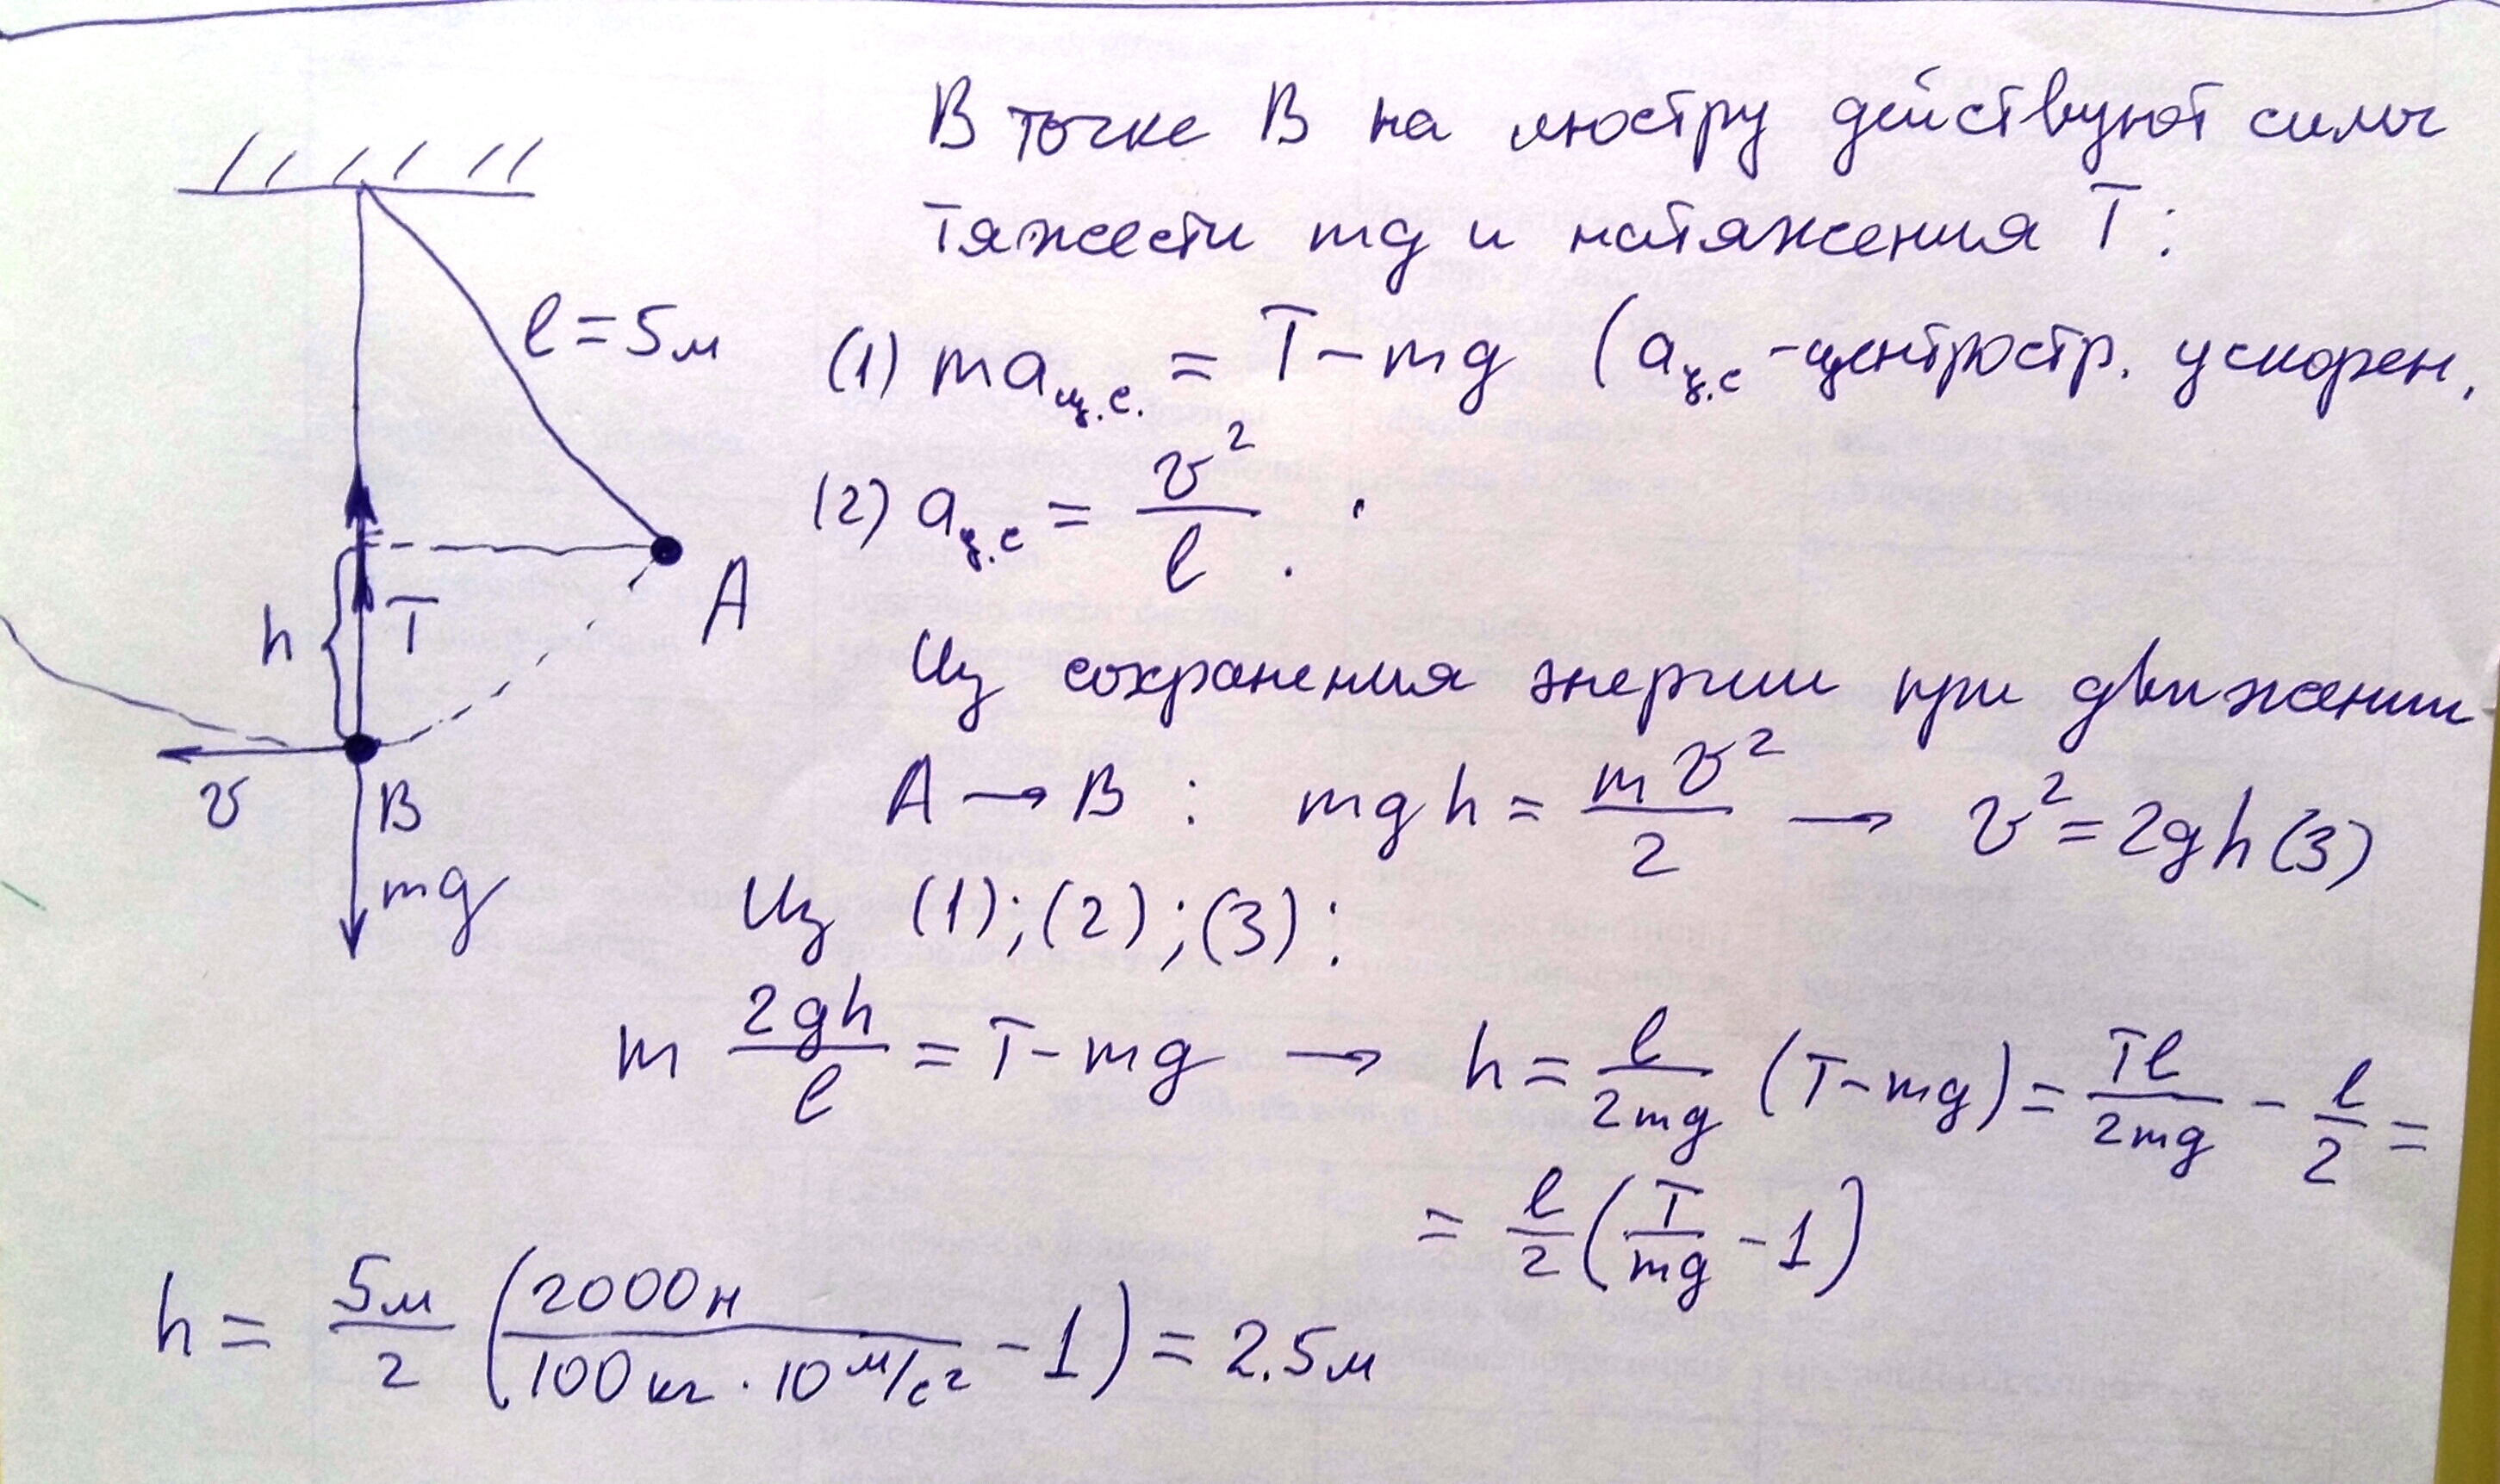 В точке В на люстру действуют силы
тяжести mg и натяжения T:
l = 5м
(1) ma ц.с. = T - mg (a ц.с - центростр. ускорен.
(2) a ц.с = v²/l .
A
h
T
Из сохранения энергии при движении
v
B
A → B : mgh = mv²/2 → v² = 2gh (3)
mg
Из (1); (2); (3):
m 2gh/l = T - mg → h = l/2mg (T - mg) = Tl/2mg - l/2 =
= l/2 (T/mg - 1)
h = 5м/2 (2000н/100кг · 10 м/с² - 1) = 2.5м